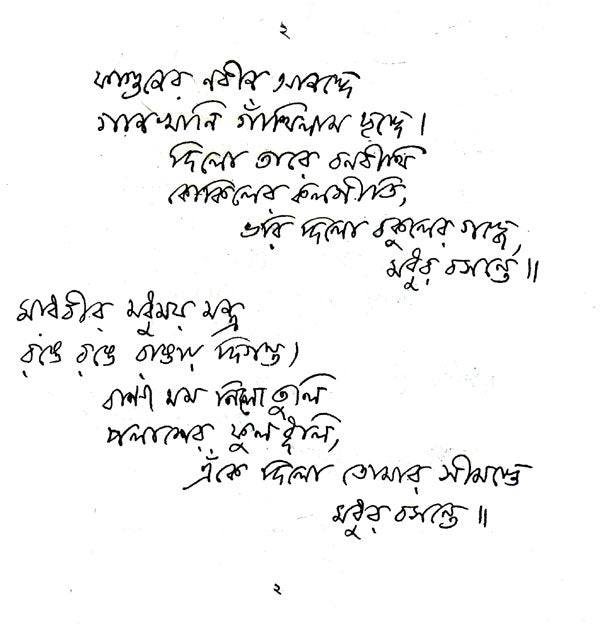 ২
ফাগুনের নবীন আনন্দে
গান-খানি গাঁথিলাম ছন্দে।
দিলো তারে বনবীথি
কোকিলের কলগীতি,
ভরি দিলো বকুলের গন্ধে,
মধুর বসন্তে॥
মাধবীর মধুময় মন্ত্র
রঙে রঙে রাঙায় দিগন্ত।
বাণী মম নিলো তুলি
পলাশের ফুল ধূলি,
এঁকে দিলো তোমার সীমন্তে
মধুর বসন্তে॥
২